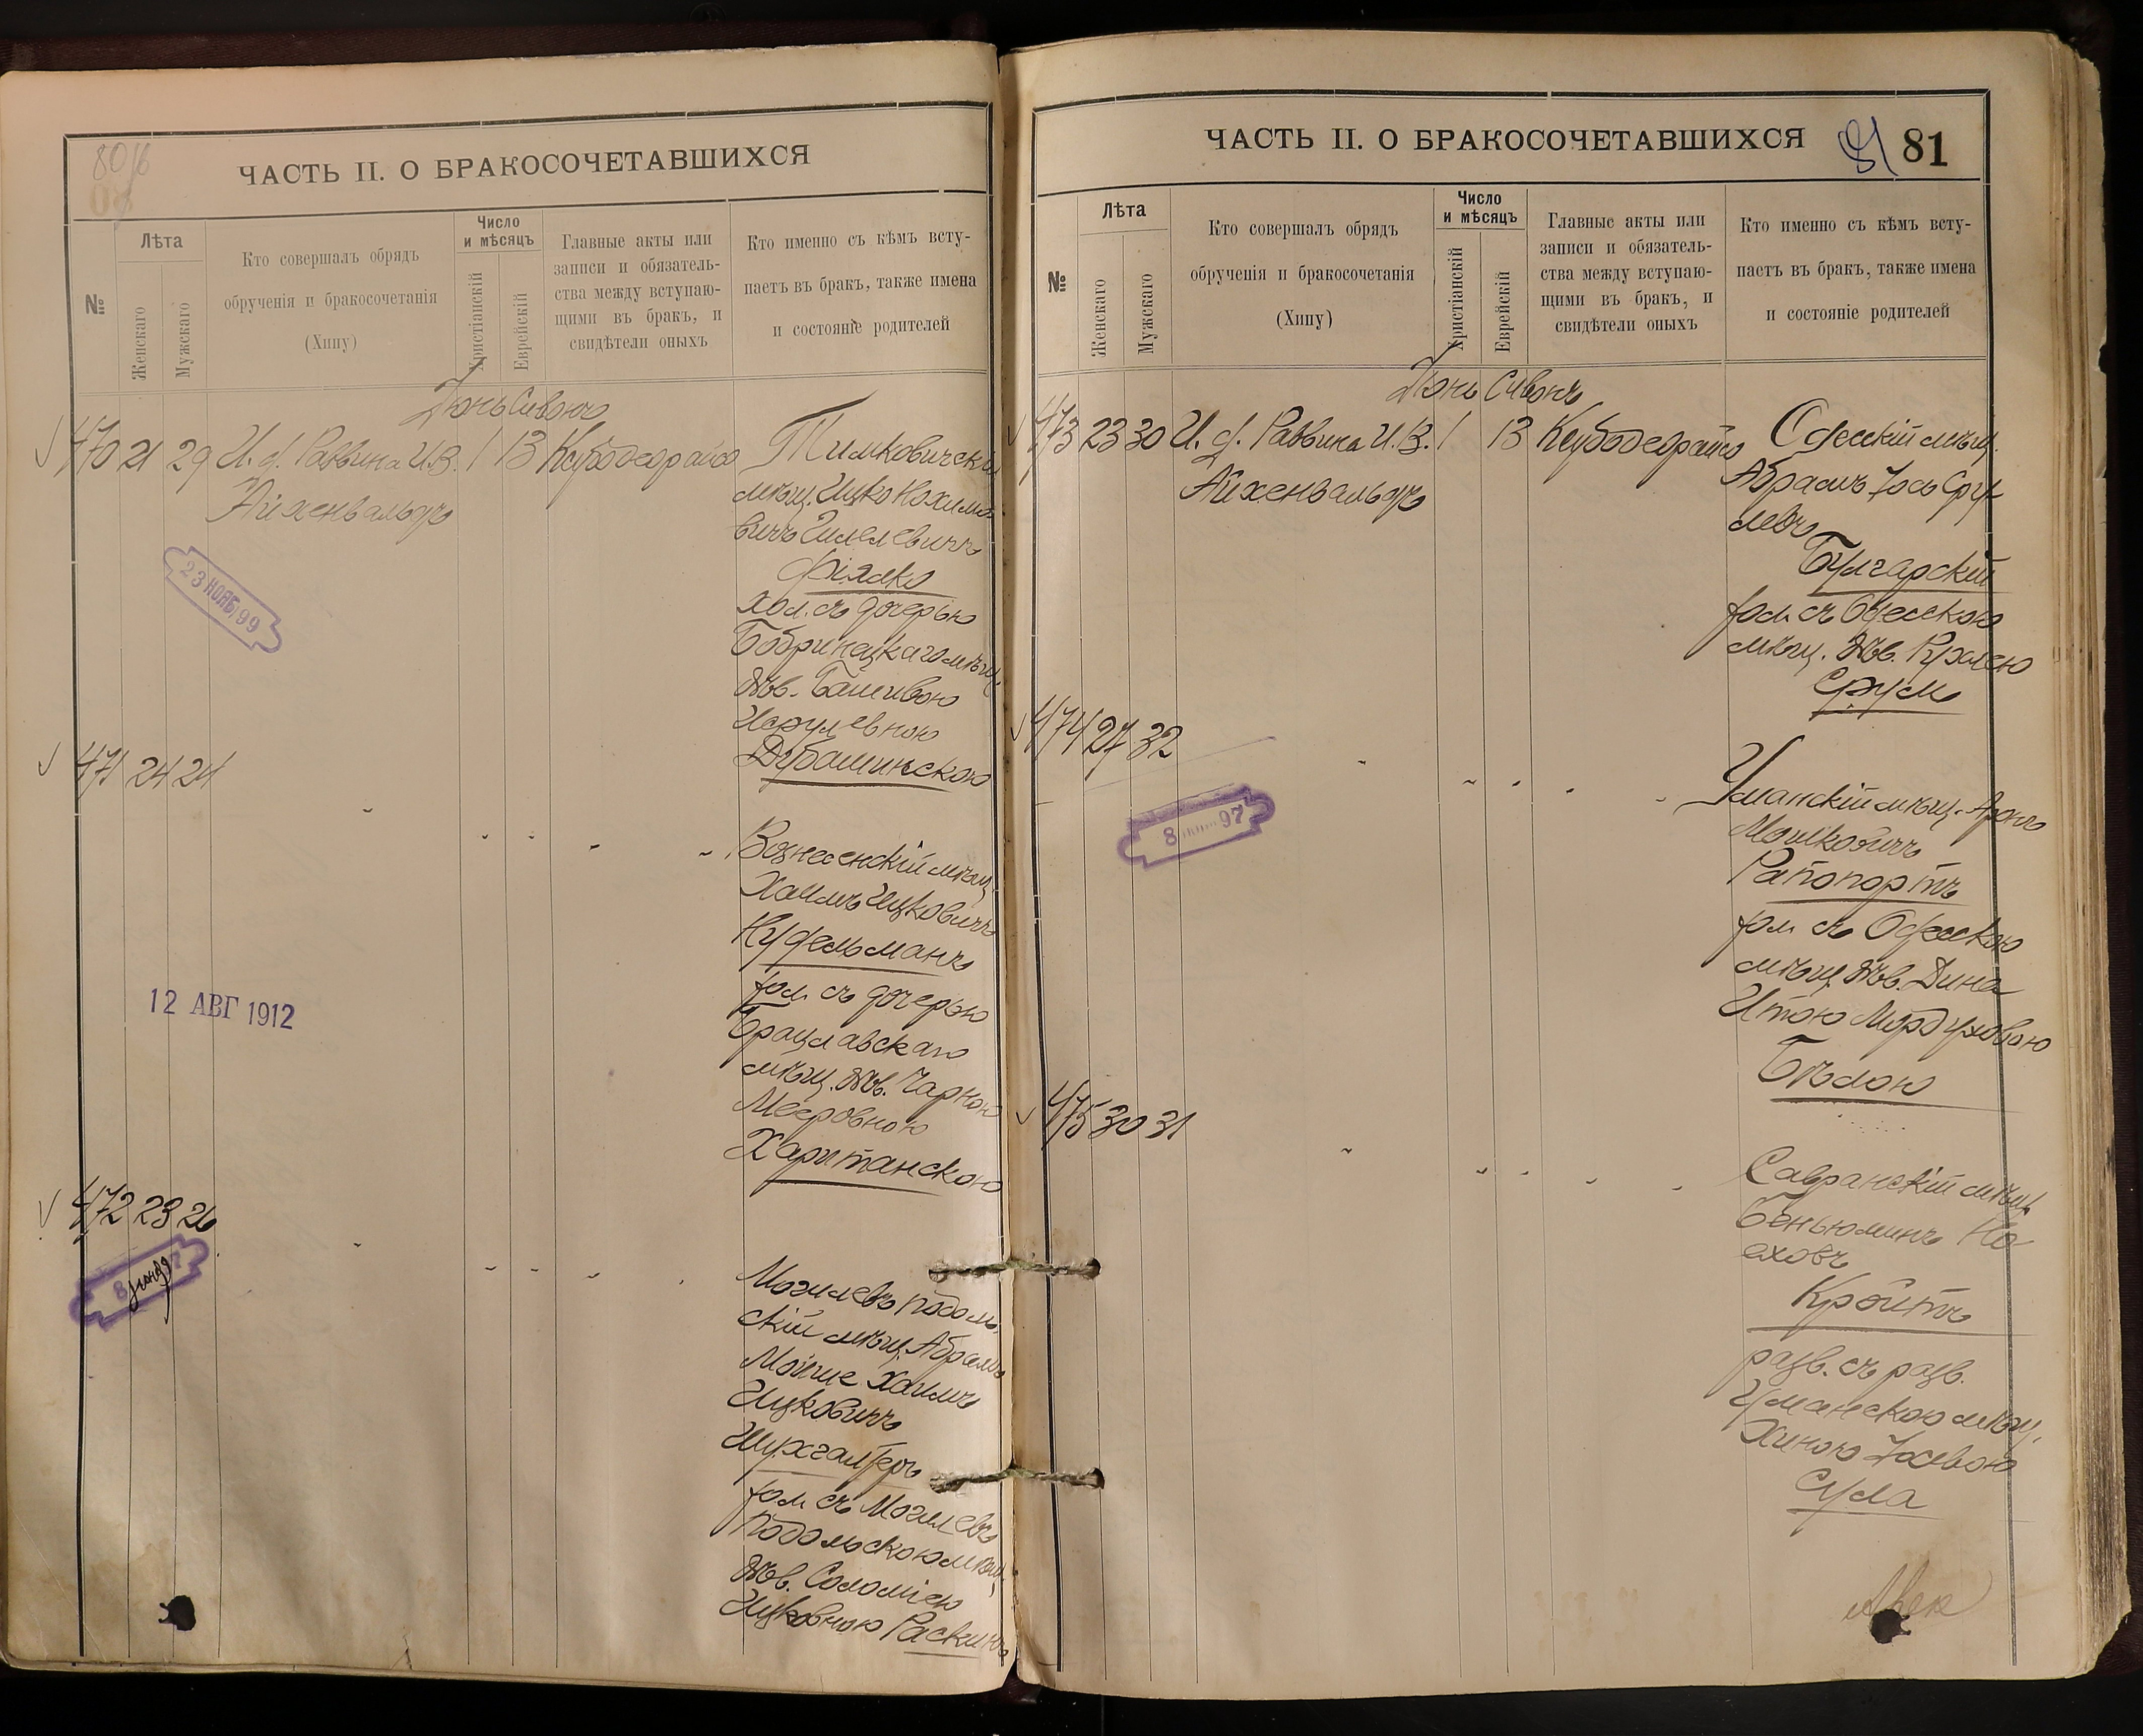 80 об
ЧАСТЬ II. О БРАКОСОЧЕТАВШИХСЯ
№
Лѣта
Женскаго
Мужскаго
Кто совершалъ обрядъ
обрученія и бракосочетанія
(Хипу)
Число
и мѣсяцъ
Христіанскій
Еврейскій
Главные акты или
записи и обязатель-
ства между вступаю-
щими въ бракъ, и
свидѣтели оныхъ
Кто именно съ кѣмъ всту-
паетъ въ бракъ, также имена
и состояніе родителей
Іюнь Сивонъ
470 21 29 И. д. Раввина И. В. 1 13 Ксубодеорайсо
Айхенвальдъ
Тимковичскій
мѣщ. Ицко Нохимо-
вичъ Гилелевичъ
Фіалко
хол. съ дочерью
Бобринецкаго мѣщ.
дѣв. Башивою
Исрулевною
Дубашинскою
23 НОЯБ 99
471 24 24
Вознесенскій мѣщ.
Хаимъ Ицковичъ
Нудельманъ
хол. съ дочерью
Брацлавскаго
мѣщ. дѣв. Чарною
Мееровною
Хаританскою
12 АВГ 1912
472 23 26
Могилевъ подоль-
скій мѣщ. Абрамъ
Мойше Хаимъ
Ицковичъ
Шухгалтеръ
хол. съ Могилевъ
подольскою мѣщ.
дѣв. Соломіею
Ицковною Раскинъ
ЧАСТЬ II. О БРАКОСОЧЕТАВШИХСЯ
81 81
№
Лѣта
Женскаго
Мужскаго
Кто совершалъ обрядъ
обрученія и бракосочетанія
(Хипу)
Число
и мѣсяцъ
Христіанскій
Еврейскій
Главные акты или
записи и обязатель-
ства между вступаю-
щими въ бракъ, и
свидѣтели оныхъ
Кто именно съ кѣмъ всту-
паетъ въ бракъ, также имена
и состояніе родителей
Іюнь Сивонъ
473 23 30 И. д. Раввина И. В. 1 13 Ксубодеорайсо
Айхенвальдъ
Одесскій мѣщ.
Абрамъ Іось Сру-
левъ
Булгарскій
хол. съ Одесскою
мѣщ. дѣв. Рухлею
Срулъ
474 27 32
Уманскій мѣщ. Аронъ
Мошковичъ
Рапопортъ
хол. съ Одесскою
мѣщ. дѣв. Дина
Итою Мордуховою
Бѣлою
475 30 31
Савранскій мѣщ.
Беньюминъ Но-
аховъ
Кройтъ
разв. съ разв.
Уманскою мѣщ.
Хиною Іосевою
Сула